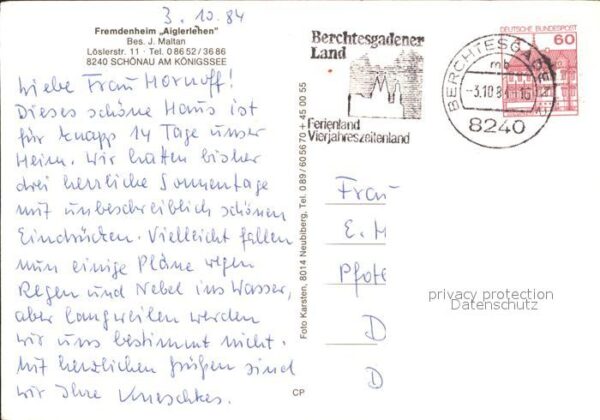 3. 10. 84
Fremdenheim „Aiglerlehen"
Bes. J. Maltan
Löslerstr. 11 · Tel. 0 86 52 / 36 86
8240 SCHÖNAU AM KÖNIGSSEE
Liebe Frau Hornoff!
Dieses schöne Haus ist
für knapp 14 Tage unser
Heim. Wir hatten bisher
drei herrliche Sonnentage
mit unbeschreiblich schönen
Eindrücken. Vielleicht fallen
nun einige Pläne wegen
Regen und Nebel ins Wasser,
aber langweilen werden
wir uns bestimmt nicht.
Mit herzlichen Grüßen sind
wir Ihre
Foto Karsten, 8014 Neubiberg, Tel. 0 89 / 60 56 70 + 45 00 55
CP
Berchtesgadener
Land
Ferienland
Vierjahreszeitenland
BERCHTESGADEN
mb
-3.10.84-16
8240
DEUTSCHE BUNDESPOST
60
Frau
E. H
Pfote
D
D
privacy protection
Datenschutz